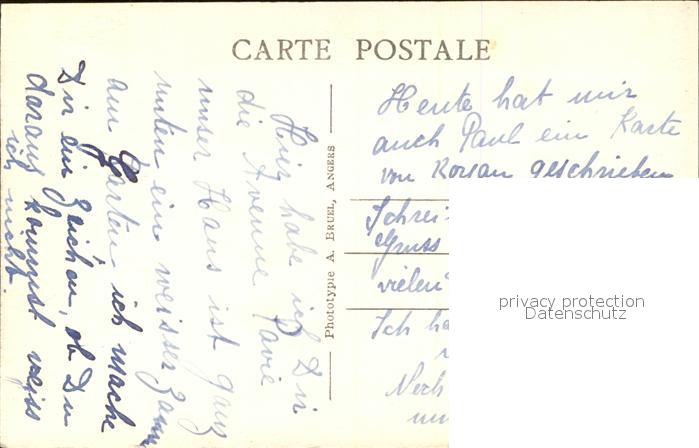 CARTE POSTALE
Hier habe ich Dir
die Avenue Pavie
unser Haus ist ganz
unten ein weisser Zaun
am Garten ich mache
Dir ein Zeichen, ob Du
daraus kommst weiss
ich nicht.
Phototypie A. Bruel, Angers
Heute hat mir
auch Paul ein Karte
von geschrieben
Schrei-
Gruss
vielen
Ich ha
Noch
privacy protection
Datenschutz